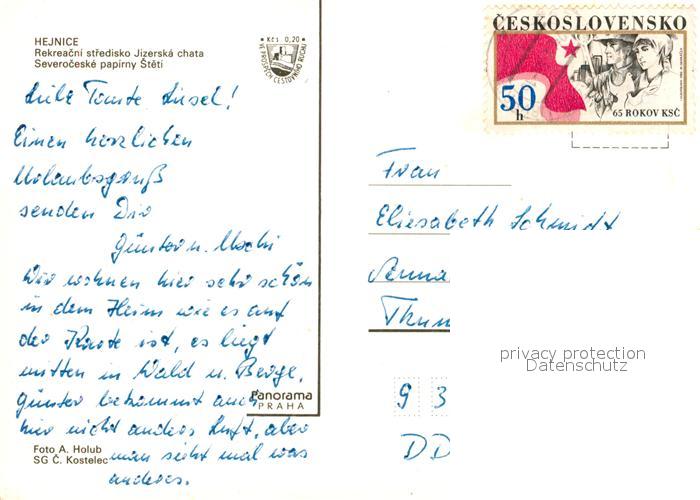 HEJNICE
Rekreační středisko Jizerská chata
Severočeské papírny Štětí
Kčs 0,20
VE PROSPĚCH CESTOVNÍHO RUCHU
ČESKOSLOVENSKO
50 h
65 ROKOV KSČ
Liebe Tante Liesel!
Einen herzlichen
Urlaubsgruß
senden Dir
Günter u. Uschi
Wir wohnen hier sehr schön
in dem Heim wie es auf
der Karte ist, es liegt
mitten in Wald u. Berge,
Günter bekommt auch
hier nicht anders Luft, aber
man sieht mal was
anderes.
Frau
Eliesabeth Schmidt
Anna
Thum
9 3
DD
Panorama
PRAHA
Foto A. Holub
SG Č. Kostelec
privacy protection
Datenschutz